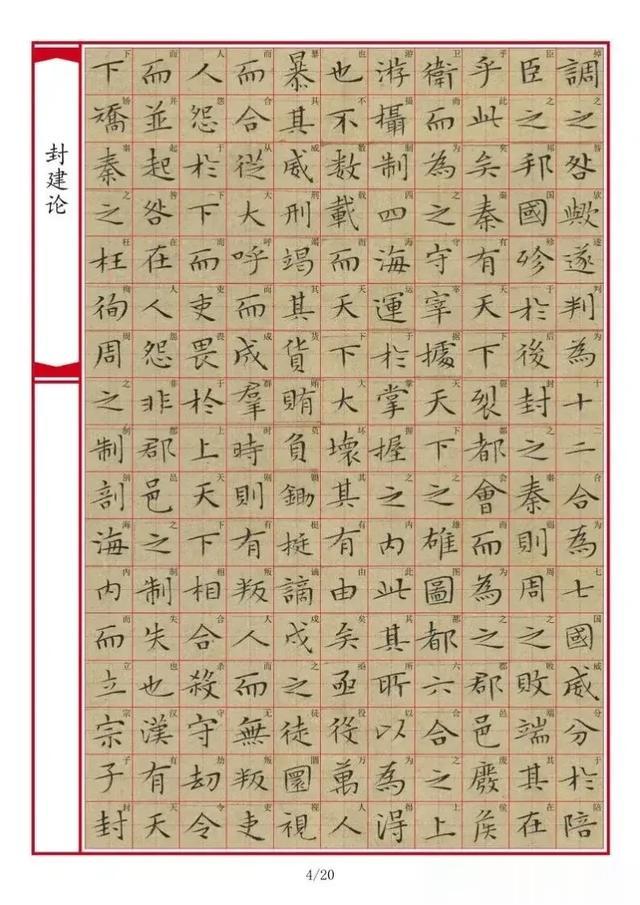 封建论
調之咎歟遂判為十二合為七國威分於陪
臣之邦國殄於後封之秦則周之敗端其在
乎此矣秦有天下裂都會而為之郡邑廢侯
衛而為之守宰據天下之雄圖都六合之上
游攝制四海運於掌握之內此其所以為得
也不数載而天下大壞其有由矣亟役萬人
暴其威刑竭其貨賄負鋤挺謫戍之徒圜視
而合從大呼而成羣時則有叛人而無叛吏
人怨於下而吏畏於上天下相合殺守劫令
而並起咎在人怨非郡邑之制失也漢有天
下矯秦之枉徇周之制剖海內而立宗子封
4/20